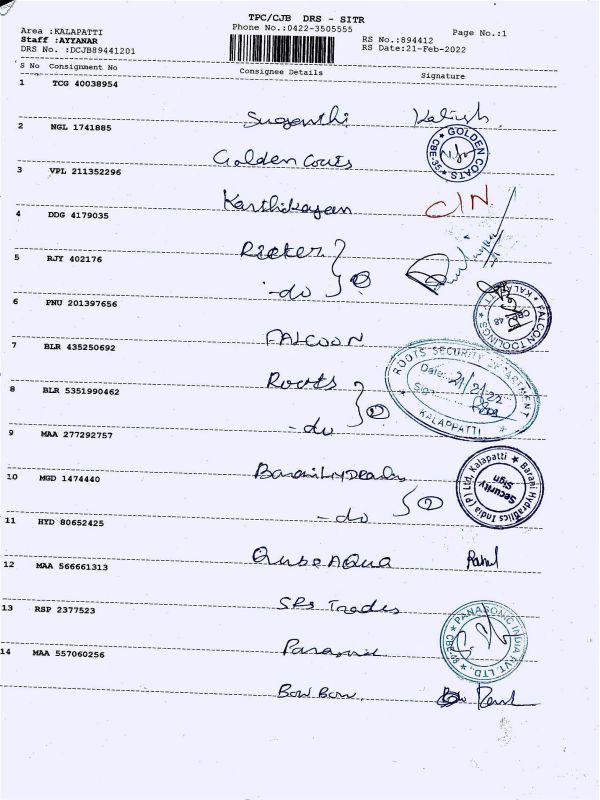 TPC/CJB DRS - SITR
Phone No.:0422-3505555
Area :KALAPATTI
Staff :AYYANAR
DRS No. :DCJB89441201
RS No.:894412
RS Date:21-Feb-2022
Page No.:1
S No Consignment No Consignee Details Signature
1 TCG 40038954 Suganthi
2 NGL 1741885 Golden Coats GOLDEN COATS CBE-35
3 VPL 211352296 Karthikayeen
4 DDG 4179035 Rieter
5 RJY 402176 -do- 2
6 PNU 201397656 FALCOON FALCON TOOLINGS KALAPATTY 48
7 BLR 435250692 Roots ROOTS SECURITY DEPARTMENT KALAPPATTI
Date: 21/2/22
Sign:
8 BLR 5351990462 -do 2
9 MAA 277292757 Barani Hydraulics Barani Hydraulics India (P) Ltd, Kalapatti
Security
Sign
10 MGD 1474440 -do 2
11 HYD 80652425 Qube AQUA
12 MAA 566661313 SPS Trades
13 RSP 2377523 Panasonic PANASONIC INDIA PVT. LTD., CBE-48
14 MAA 557060256 Bow Bow.